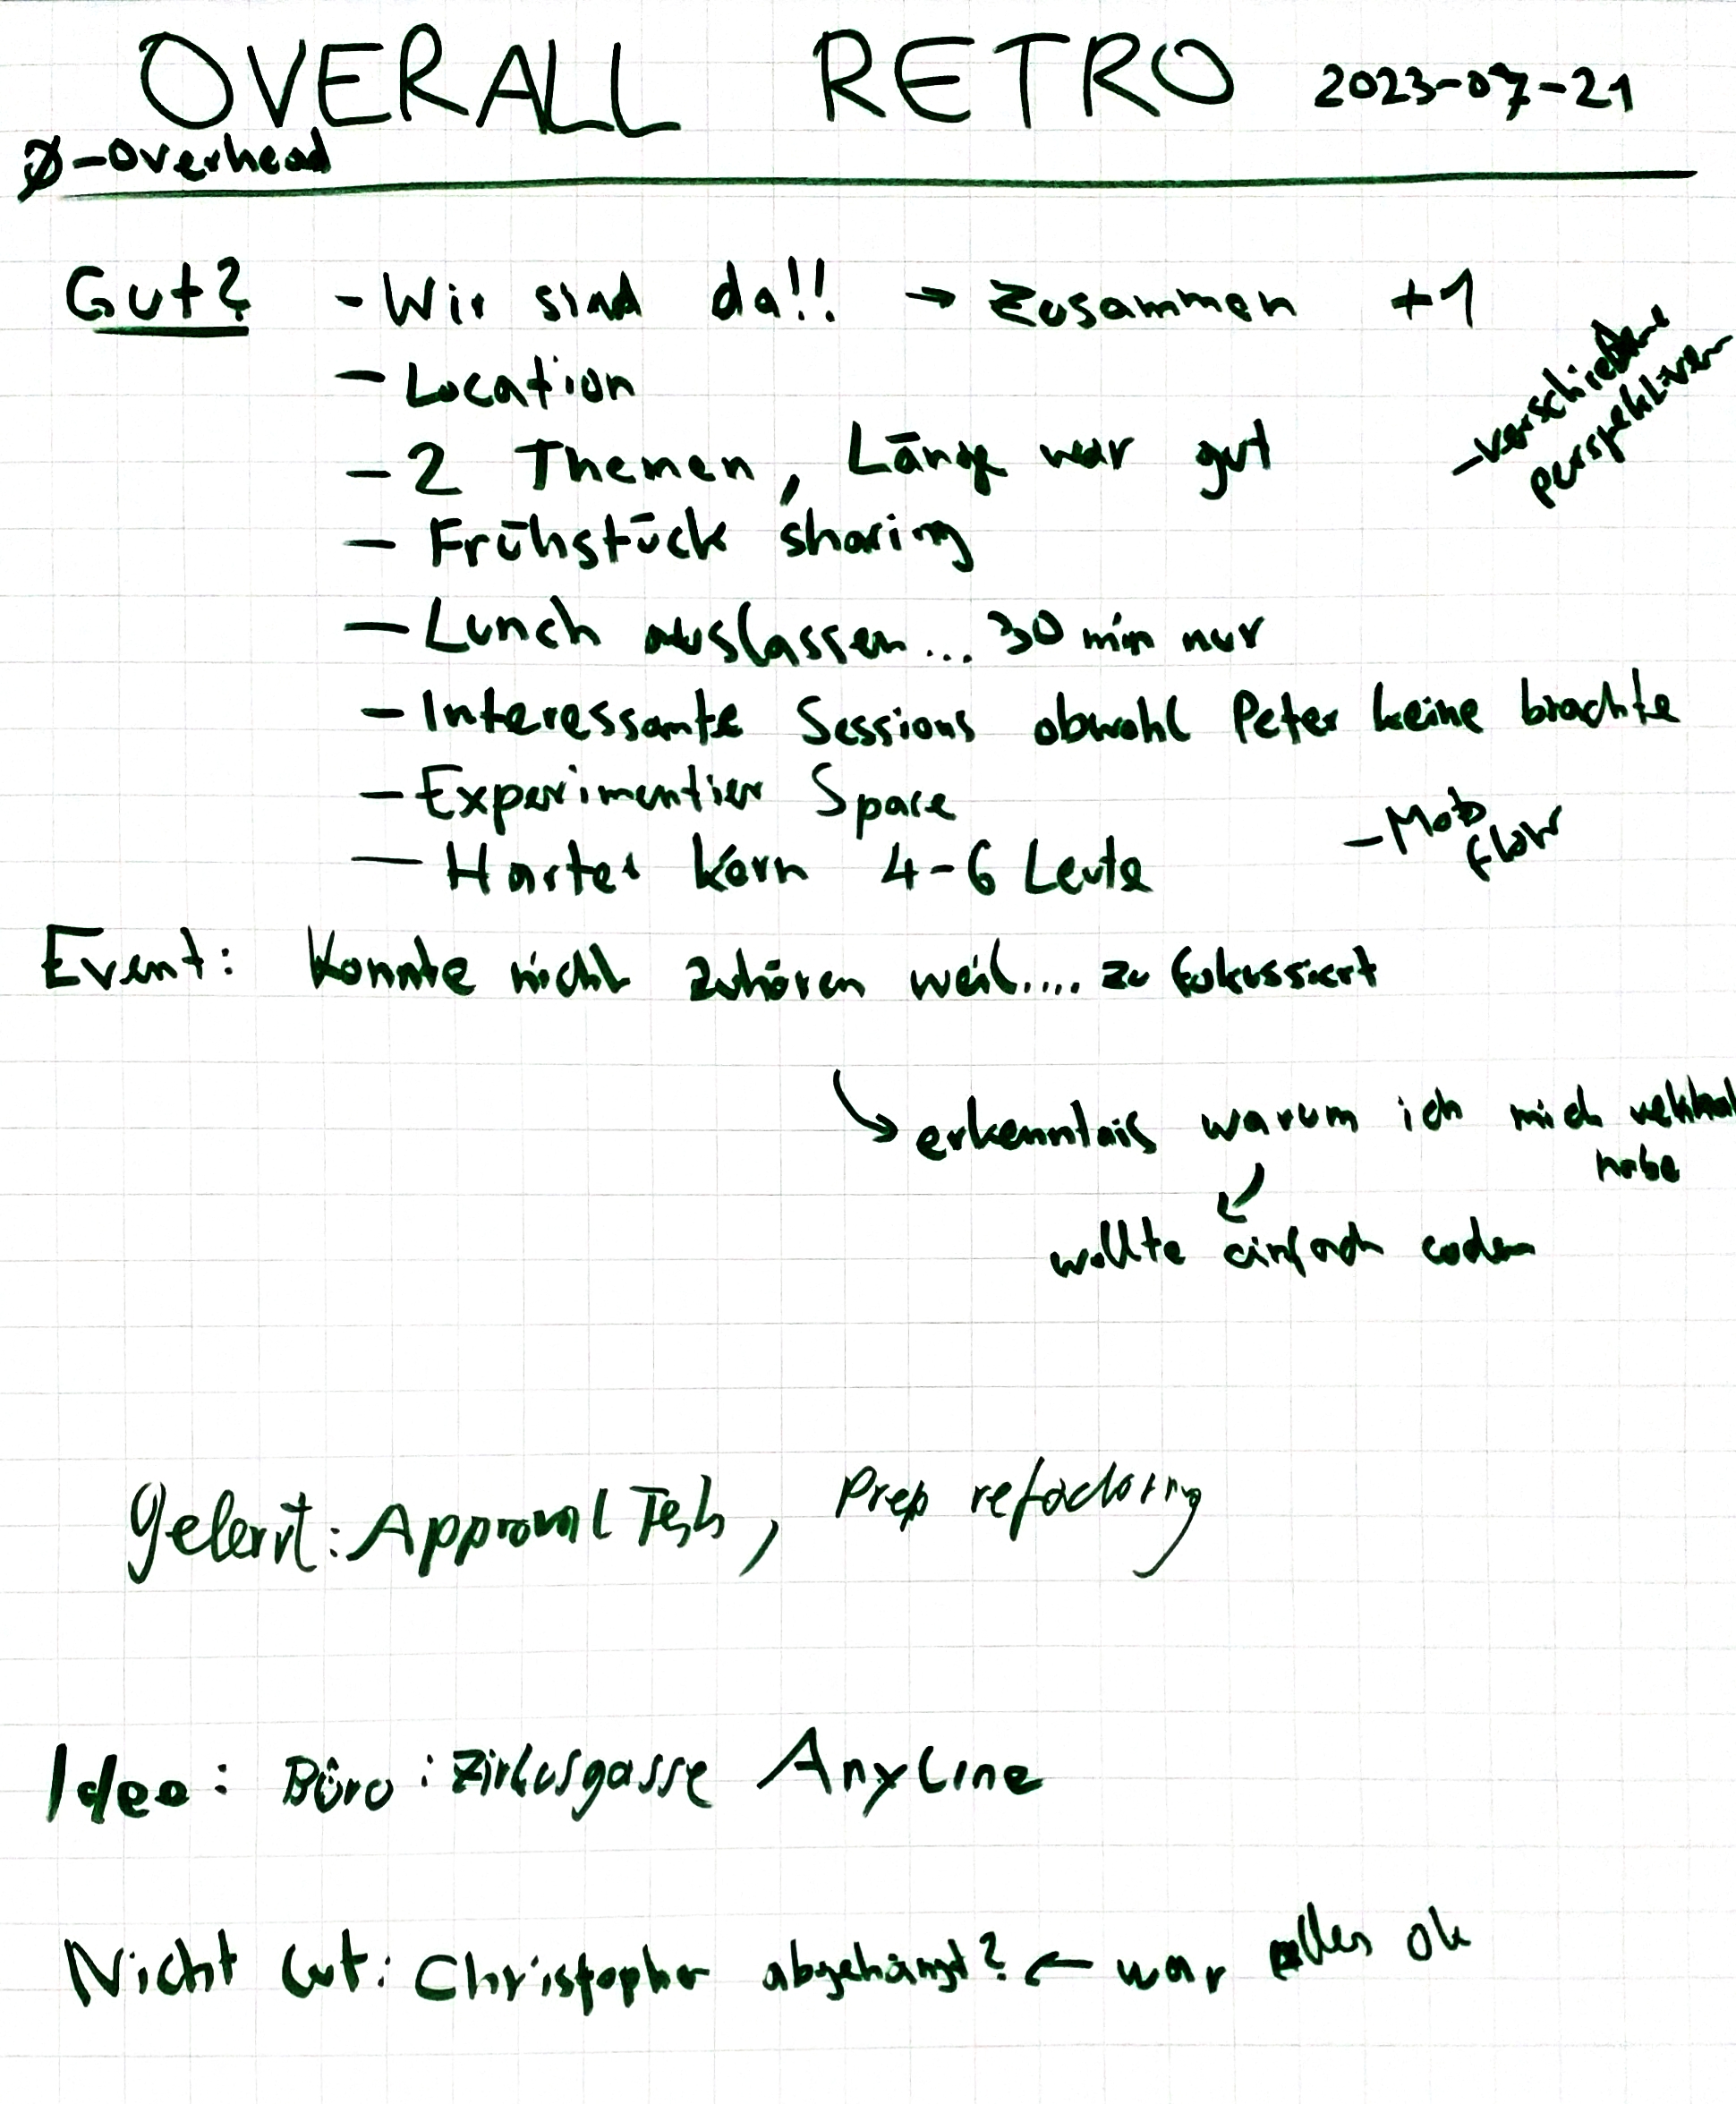 OVERALL RETRO 2023-07-21
Ø-Overhead
Gut? - Wir sind da!! → Zusammen +1
- Location
- verschiedene perspektiven
- 2 Themen, Länge war gut
- Frühstück sharing
- Lunch auslassen... 30 min nur
- Interessante Sessions obwohl Peter keine brachte
- Experimentier Space
- Mob flow
- Harter Kern 4-6 Leute
Event: Konnte nicht zuhören weil.... zu fokussiert
↳ erkenntnis warum ich mich
habe
wollte einfach coden
Gelernt: Approval Tests, Prep refactoring
Idee: Büro: Zirkusgasse Anyline
Nicht Gut: Christopher abgehängt? ← war alles ok